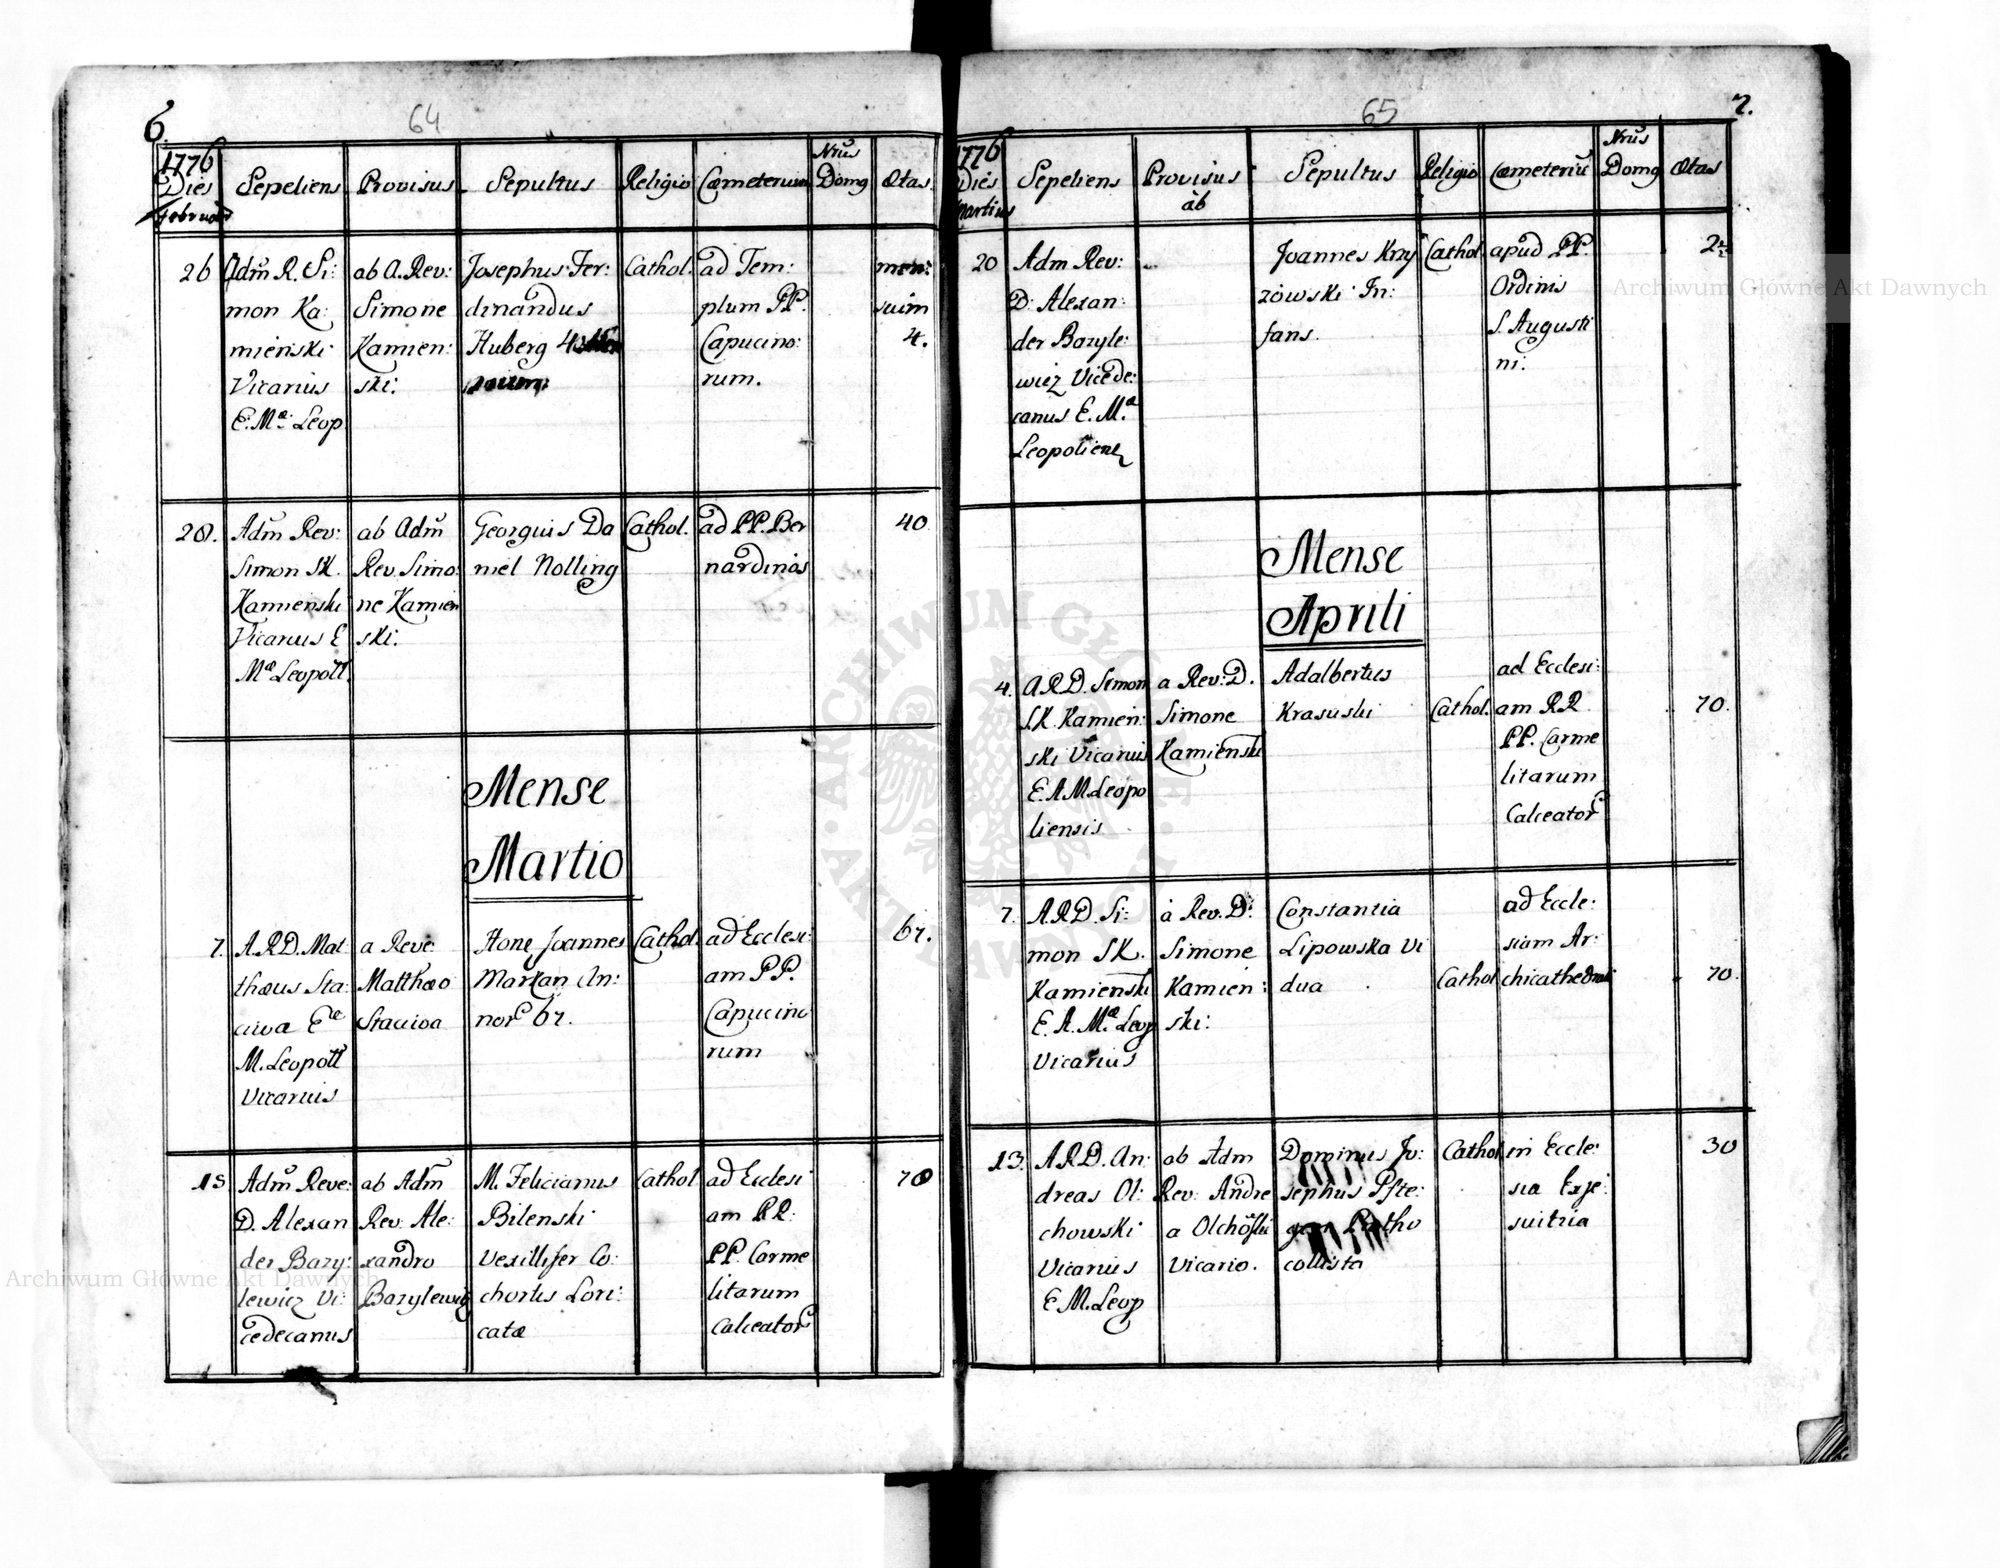 6.
64
1776
Dies
Februarii
Sepeliens
Provisus
Sepultus
Religio
Cœmeterium
Nrus
Domg
Ætas
26
Adm̃ R. Si:
mon Ka:
mieński
Vicarius
E. Mæ: Leop.
ab A. Rev:
Simone
Kamien:
ski:
Josephus Fer:
dinandus
Huberg
Cathol.
ad Tem:
plum PP.
Capucino:
rum.
men:
suim
4.
28.
Adm̃ Rev:
Simon SK.
Kamienski
Vicarius E
Mæ Leopoll.
ab Adm̃
Rev. Simo:
ne Kamien
ski.
Georgius Da
niel Nolling
Cathol.
ad PP. Ber
nardinos
40
Mense
Martio
7.
A.R.D. Mat
thæus Sta:
ciwa Eæ
M. Leopoll
Vicarius
a Reve:
Matthæo
Staciwa
Hone Joannes
Markan An:
nor 67.
Cathol.
ad Ecclesi:
am PP.
Capucino
rum
67.
15
Adm̃ Reve:
D. Alexan
der Bazy:
lewicz Vi:
cedecanus
ab Adm̃
Rev. Ale:
xandro
Bazylewicz
M. Felicianus
Bilenski
Vexillifer Co:
hortis Lori:
catæ
Cathol
ad Ecclesi
am RR:
PP. Carme
litarum
Calceator
70
65
7.
1776
Dies
Martius
Sepeliens
Provisus
ab
Sepultus
Religio
Cœmeteriũ
Nrus
Domg
Ætas
20
Adm Rev:
D: Alexan:
der Bazyle:
wicz Vicede:
canus E. M.æ
Leopolien
Joannes Krzy
zowski In:
fans.
Cathol
apud PP.
Ordinis
S. Augusti
ni.
Mense
Aprili
4.
A.R.D. Simon
S.K. Kamien:
ski Vicarius
E. A. M. Leopo
liensis
a Rev: D.
Simone
Kamienski
Adalbertus
Krasuski
Cathol.
ad Ecclesi:
am RR.
PP. Carme
litarum
Calceator
70.
7.
A.R.D. Si:
mon SK.
Kamienski
E. A. Mæ Leop
Vicarius
a Rev. D:
Simone
Kamien:
ski:
Constantia
Lipowska Vi
dua
Cathol
ad Eccle:
siam Ar:
chicathedrali
70.
13.
A.R.D. An:
dreas Ol:
chowski
Vicarius
E. M. Leop
ab Adm
Rev: Andre
a Olchowski
Vicario.
Dominus Jo:
sephus
Cathol
in Eccle:
sia Exje:
suitica
30
Archiwum Główne Akt Dawnych
Archiwum Główne Akt Dawnych
ARCHIWUM GŁÓWNE AKT DAWNYCH